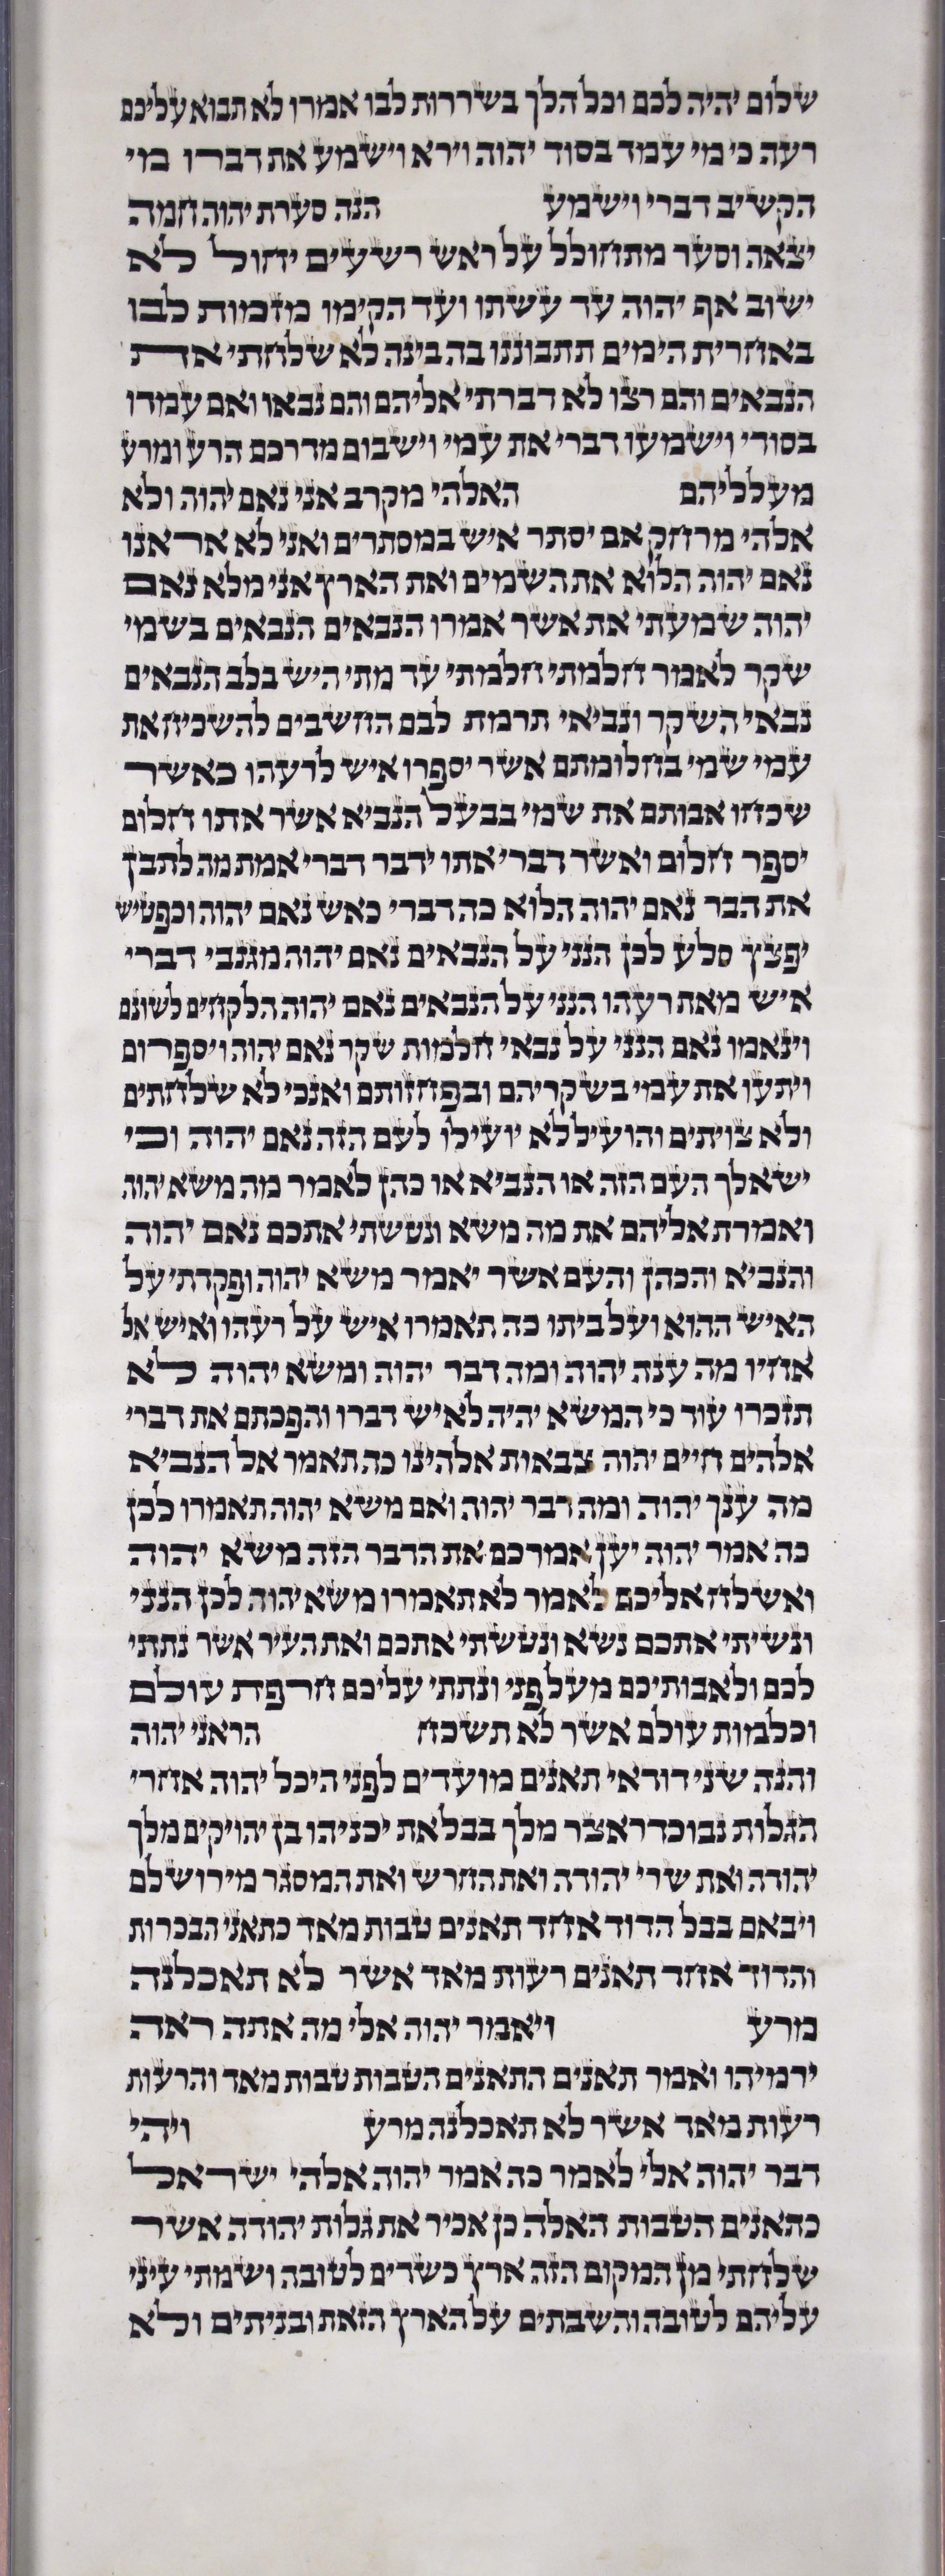 שלום יהיה לכם וכל הלך בשררות לבו אמרו לא תבוא עליכם
רעה כי מי עמד בסוד יהוה וירא וישמע את דברו מי
הקשיב דברי וישמע הנה סערת יהוה חמה
יצאה וסער מתחולל על ראש רשעים יחול לא
ישוב אף יהוה עד עשתו ועד הקימו מזמות לבו
באחרית הימים תתבוננו בה בינה לא שלחתי את
הנבאים והם רצו לא דברתי אליהם והם נבאו ואם עמדו
בסודי וישמעו דברי את עמי וישבום מדרכם הרע ומרע
מעלליהם האלהי מקרב אני נאם יהוה ולא
אלהי מרחק אם יסתר איש במסתרים ואני לא אראנו
נאם יהוה הלוא את השמים ואת הארץ אני מלא נאם
יהוה שמעתי את אשר אמרו הנבאים הנבאים בשמי
שקר לאמר חלמתי חלמתי עד מתי היש בלב הנבאים
נבאי השקר ונביאי תרמת לבם החשבים להשכיח את
עמי שמי בחלומתם אשר יספרו איש לרעהו כאשר
שכחו אבותם את שמי בבעל הנביא אשר אתו חלום
יספר חלום ואשר דברי אתו ידבר דברי אמת מה לתבן
את הבר נאם יהוה הלוא כה דברי כאש נאם יהוה וכפטיש
יפצץ סלע לכן הנני על הנבאים נאם יהוה מגנבי דברי
איש מאת רעהו הנני על הנבאים נאם יהוה הלקחים לשונם
וינאמו נאם הנני על נבאי חלמות שקר נאם יהוה ויספרום
ויתעו את עמי בשקריהם ובפחזותם ואנכי לא שלחתים
ולא צויתים והועיל לא יועילו לעם הזה נאם יהוה וכי
ישאלך העם הזה או הנביא או כהן לאמר מה משא יהוה
ואמרת אליהם את מה משא ונטשתי אתכם נאם יהוה
והנביא והכהן והעם אשר יאמר משא יהוה ופקדתי על
האיש ההוא ועל ביתו כה תאמרו איש על רעהו ואיש אל
אחיו מה ענה יהוה ומה דבר יהוה ומשא יהוה לא
תזכרו עוד כי המשא יהיה לאיש דברו והפכתם את דברי
אלהים חיים יהוה צבאות אלהינו כה תאמר אל הנביא
מה ענך יהוה ומה דבר יהוה ואם משא יהוה תאמרו לכן
כה אמר יהוה יען אמרכם את הדבר הזה משא יהוה
ואשלח אליכם לאמר לא תאמרו משא יהוה לכן הנני
ונשיתי אתכם נשא ונטשתי אתכם ואת העיר אשר נתתי
לכם ולאבותיכם מעל פני ונתתי עליכם חרפת עולם
וכלמות עולם אשר לא תשכח הראני יהוה
והנה שני דודאי תאנים מועדים לפני היכל יהוה אחרי
הגלות נבוכדראצר מלך בבל את יכניהו בן יהויקים מלך
יהודה ואת שרי יהודה ואת החרש ואת המסגר מירושלם
ויבאם בבל הדוד אחד תאנים טבות מאד כתאני הבכרות
והדוד אחד תאנים רעות מאד אשר לא תאכלנה
מרע ויאמר יהוה אלי מה אתה ראה
ירמיהו ואמר תאנים התאנים הטבות טבות מאד והרעות
רעות מאד אשר לא תאכלנה מרע ויהי
דבר יהוה אלי לאמר כה אמר יהוה אלהי ישראל
כתאנים הטבות האלה כן אכיר את גלות יהודה אשר
שלחתי מן המקום הזה ארץ כשדים לטובה ושמתי עיני
עליהם לטובה והשבתים על הארץ הזאת ובניתים ולא